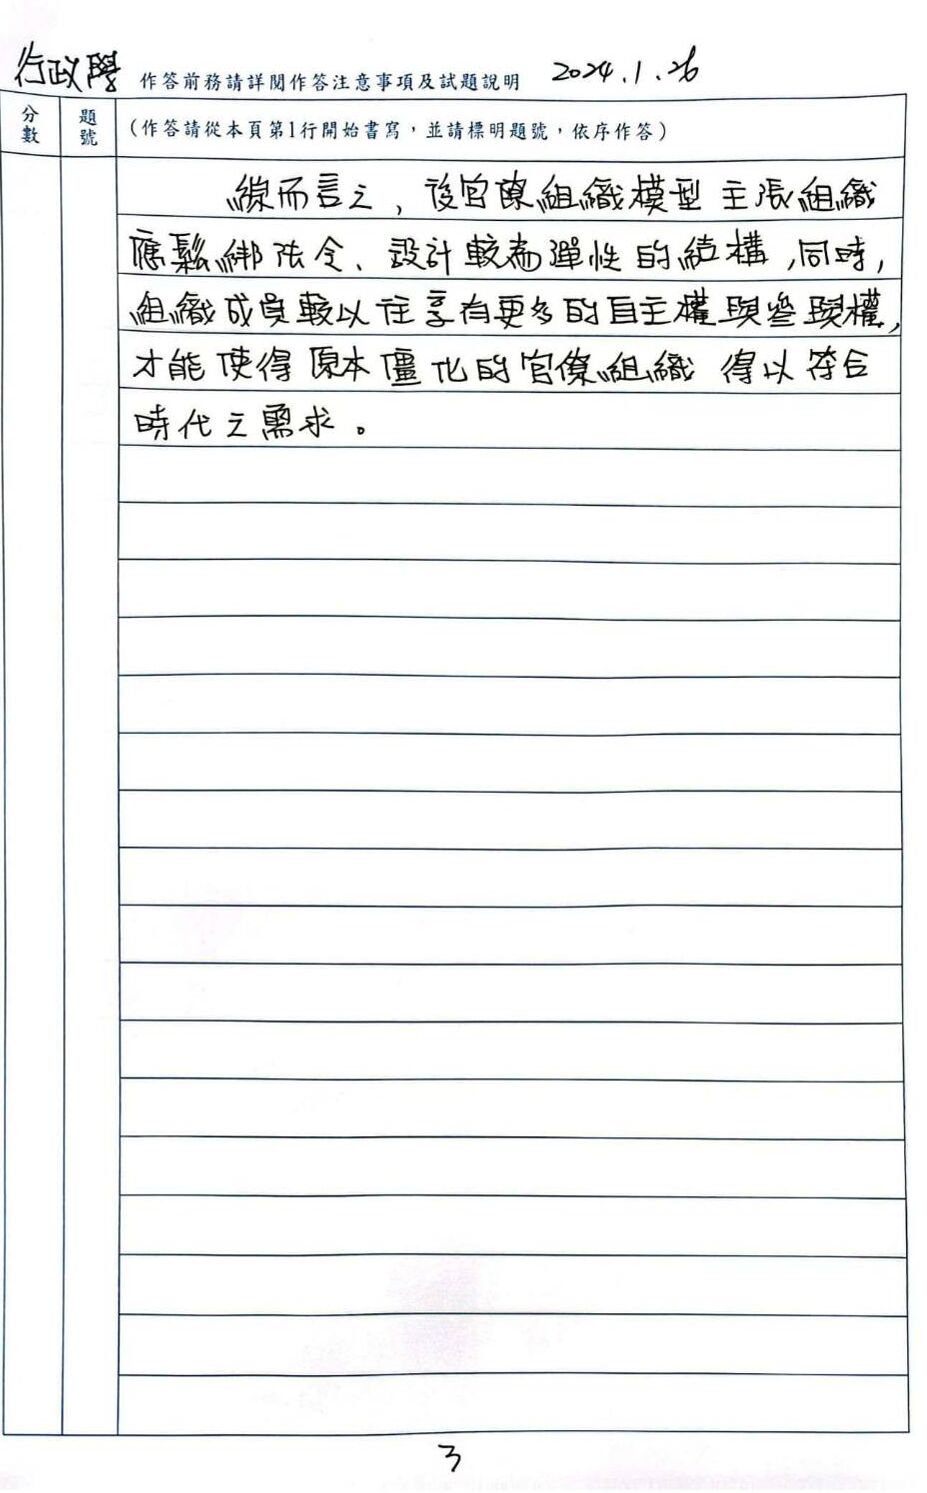 行政學 作答前務請詳閱作答注意事項及試題說明 2024.1.26
分數 題號 (作答請從本頁第1行開始書寫，並請標明題號，依序作答)
總而言之，後官僚組織模型主張組織
應鬆綁法令、設計較為彈性的結構，同時，
組織成員較以往享有更多的自主權與參與權，
才能使得原本僵化的官僚組織得以符合
時代之需求。
3